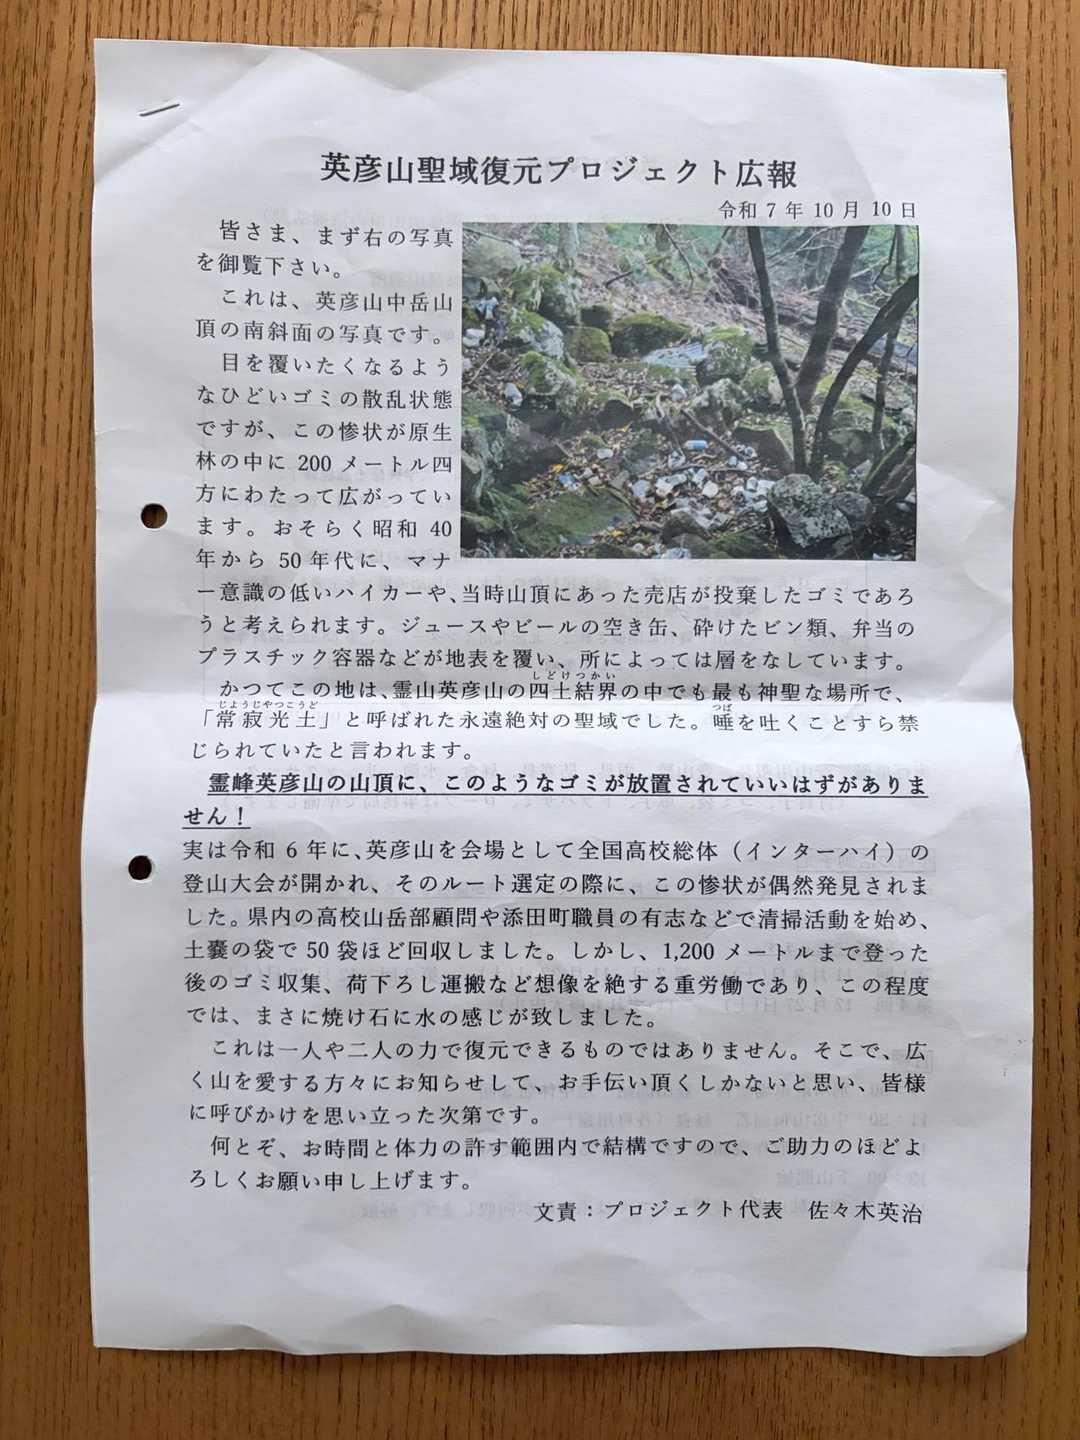 英彦山聖域復元プロジェクト広報
令和7年10月10日
皆さま、まず右の写真
を御覧下さい。
これは、英彦山中岳山
頂の南斜面の写真です。
目を覆いたくなるよう
なひどいゴミの散乱状態
ですが、この惨状が原生
林の中に200メートル四
方にわたって広がってい
ます。おそらく昭和40
年から50年代に、マナ
ー意識の低いハイカーや、当時山頂にあった売店が投棄したゴミであろ
うと考えられます。ジュースやビールの空き缶、砕けたビン類、弁当の
プラスチック容器などが地表を覆い、所によっては層をなしています。
しどけつかい
かつてこの地は、霊山英彦山の四土結界の中でも最も神聖な場所で、
じょうじやつこうど つば
「常寂光土」と呼ばれた永遠絶対の聖域でした。唾を吐くことすら禁
じられていたと言われます。
霊峰英彦山の山頂に、このようなゴミが放置されていいはずがありま
せん！
実は令和6年に、英彦山を会場として全国高校総体（インターハイ）の
登山大会が開かれ、そのルート選定の際に、この惨状が偶然発見されま
した。県内の高校山岳部顧問や添田町職員の有志などで清掃活動を始め、
土嚢の袋で50袋ほど回収しました。しかし、1,200メートルまで登った
後のゴミ収集、荷下ろし運搬など想像を絶する重労働であり、この程度
では、まさに焼け石に水の感じが致しました。
これは一人や二人の力で復元できるものではありません。そこで、広
く山を愛する方々にお知らせして、お手伝い頂くしかないと思い、皆様
に呼びかけを思い立った次第です。
何とぞ、お時間と体力の許す範囲内で結構ですので、ご助力のほどよ
ろしくお願い申し上げます。
文責：プロジェクト代表 佐々木英治